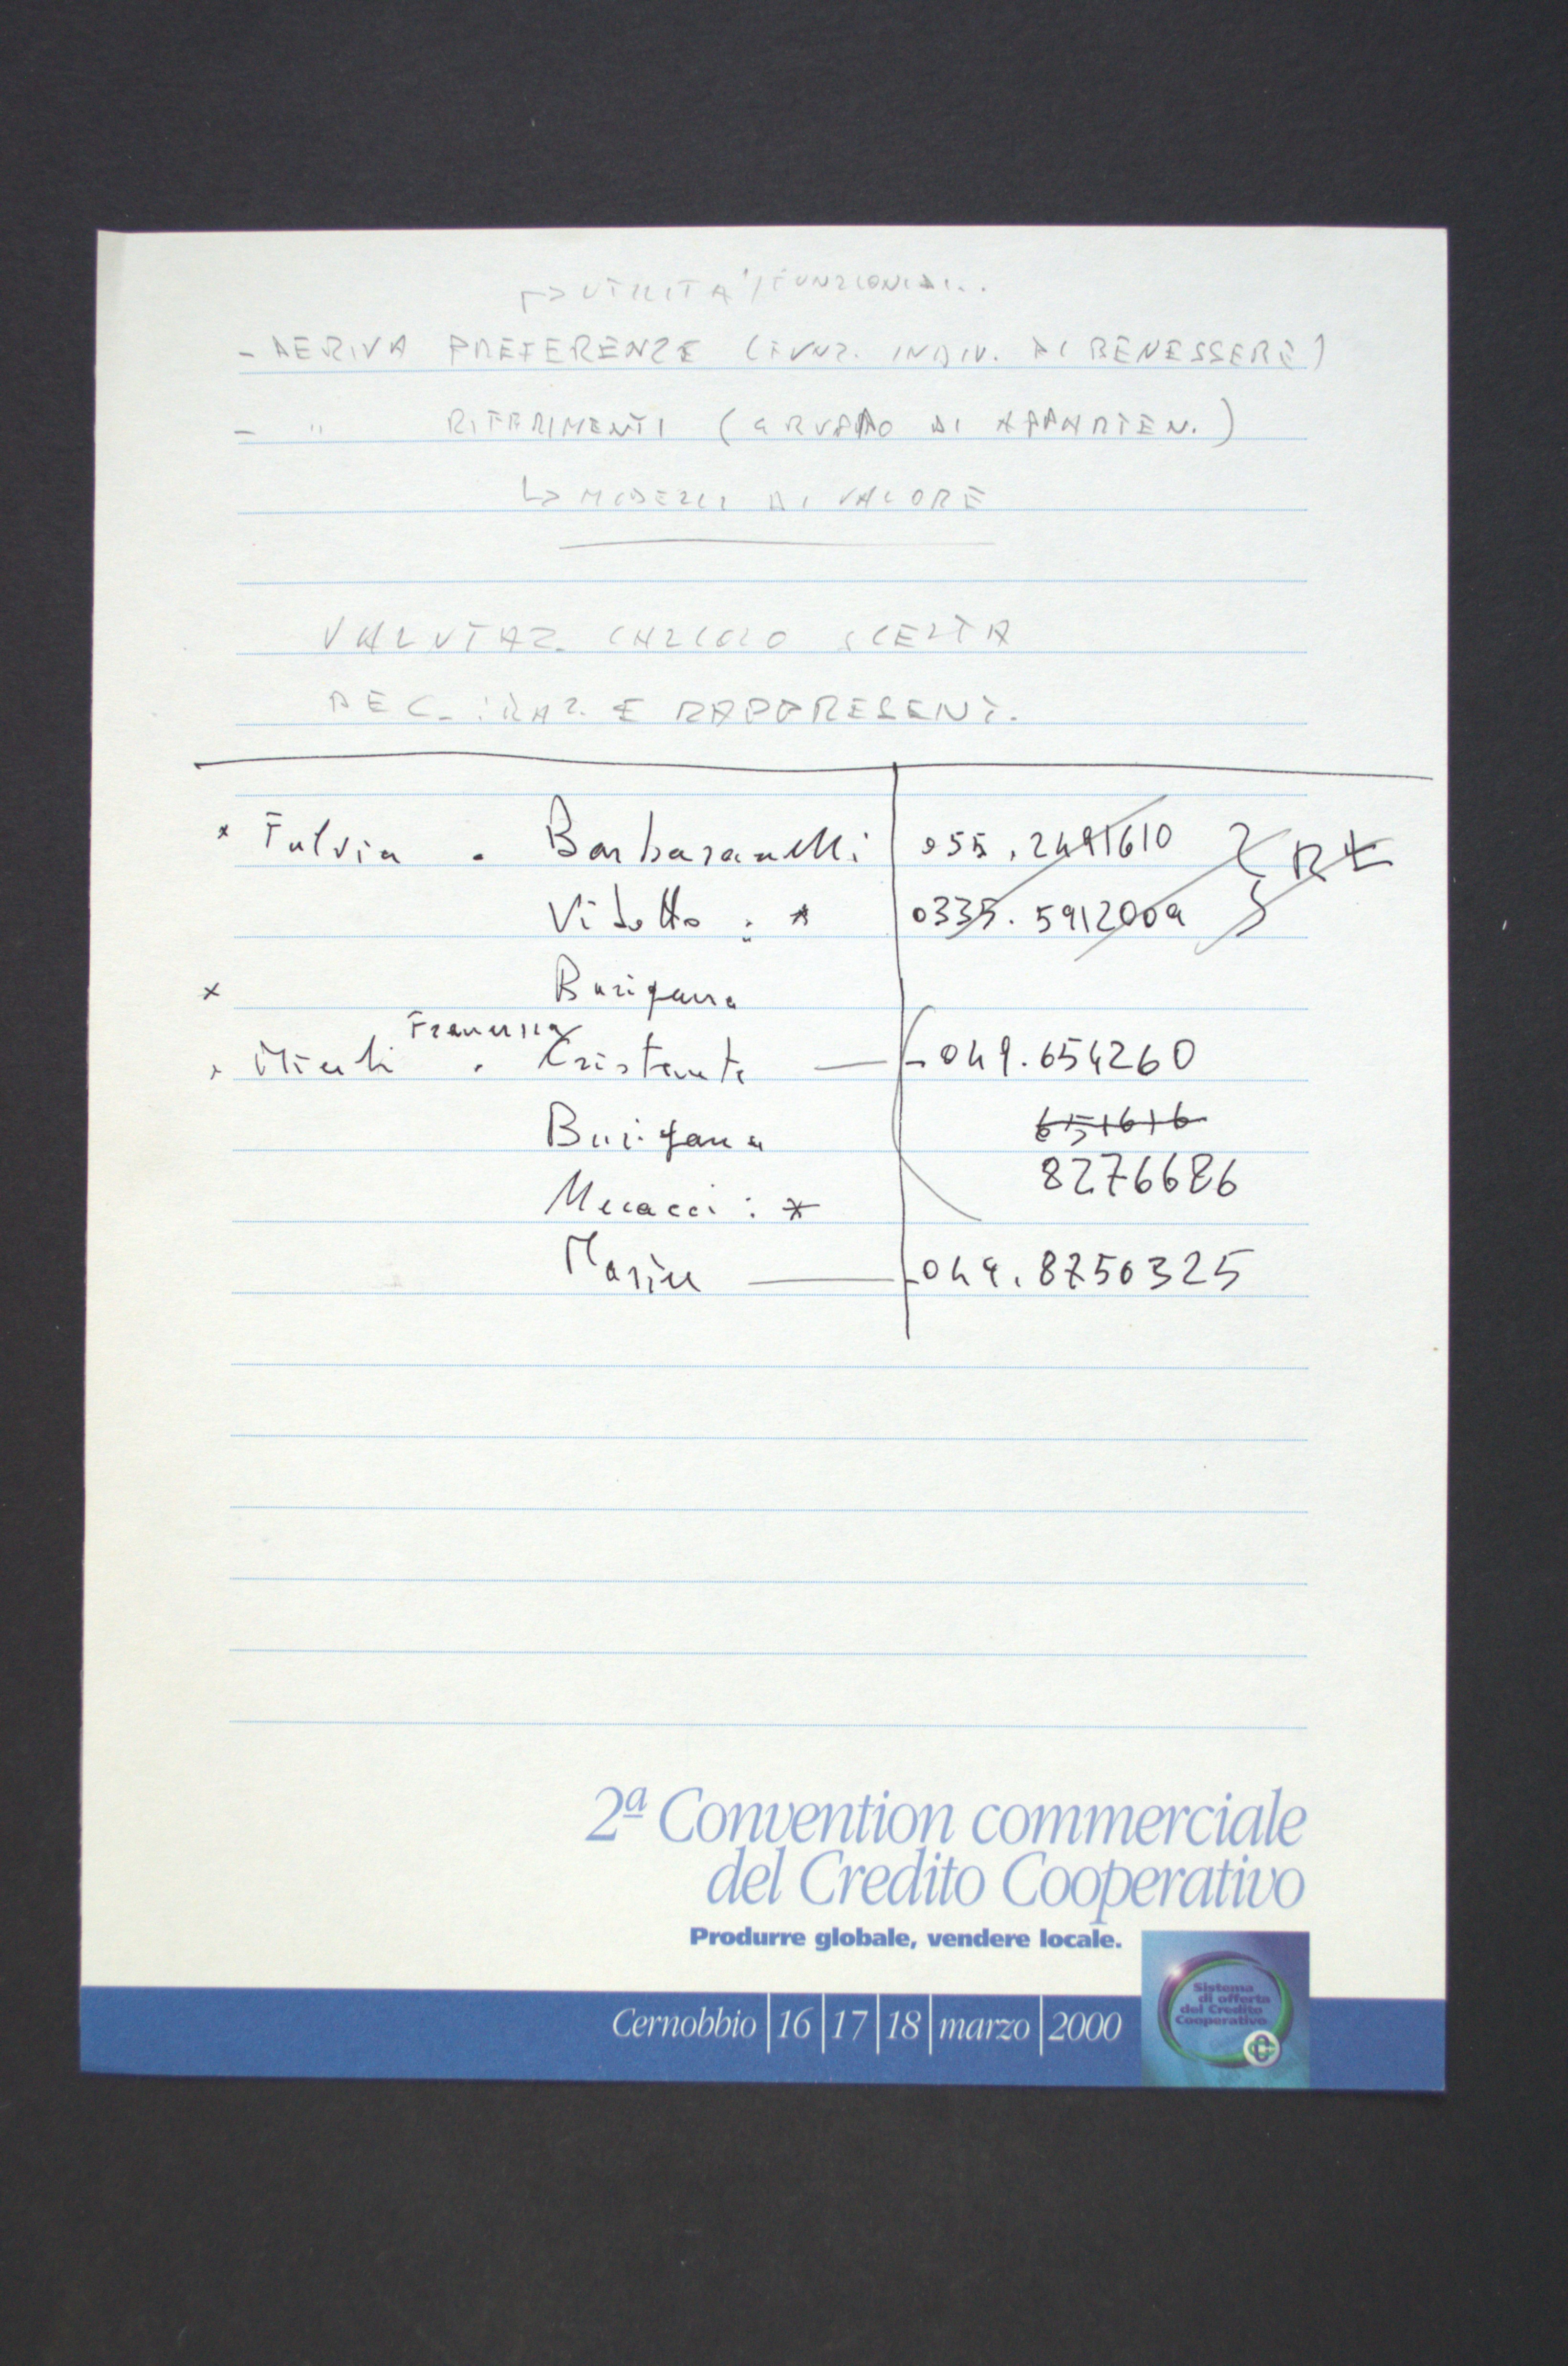 → UTILITA' / FUNZIONAL..
- DERIVA PREFERENZE (FUNZ. INDIV. DI BENESSERE)
- " RIFERIMENTI (GRUPPO DI APPARTEN.)
↳ MODELLI DI VALORE
VALUTAZ. CALCOLO SCELTA
E RAPPRESENT.
x Fulvia . Barbaranelli 055.2491610
Vidotto : * 0335.5912009
x Burigana
Francesca
Cristante — 049.654260
Burigana 651616
8276686
Mecacci : *
Marin — 049.8750325
2ª Convention commerciale
del Credito Cooperativo
Produrre globale, vendere locale.
Sistema
di offerta
del Credito
Cooperativo
Cernobbio | 16 | 17 | 18 | marzo | 2000